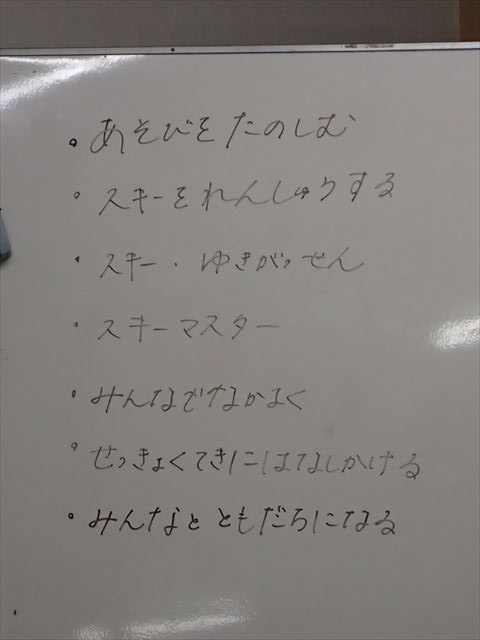 ・あそびをたのしむ
・スキーをれんしゅうする
・スキー・ゆきがっせん
・スキーマスター
・みんなでなかよく
・せっきょくてきにはなしかける
・みんなとともだちになる